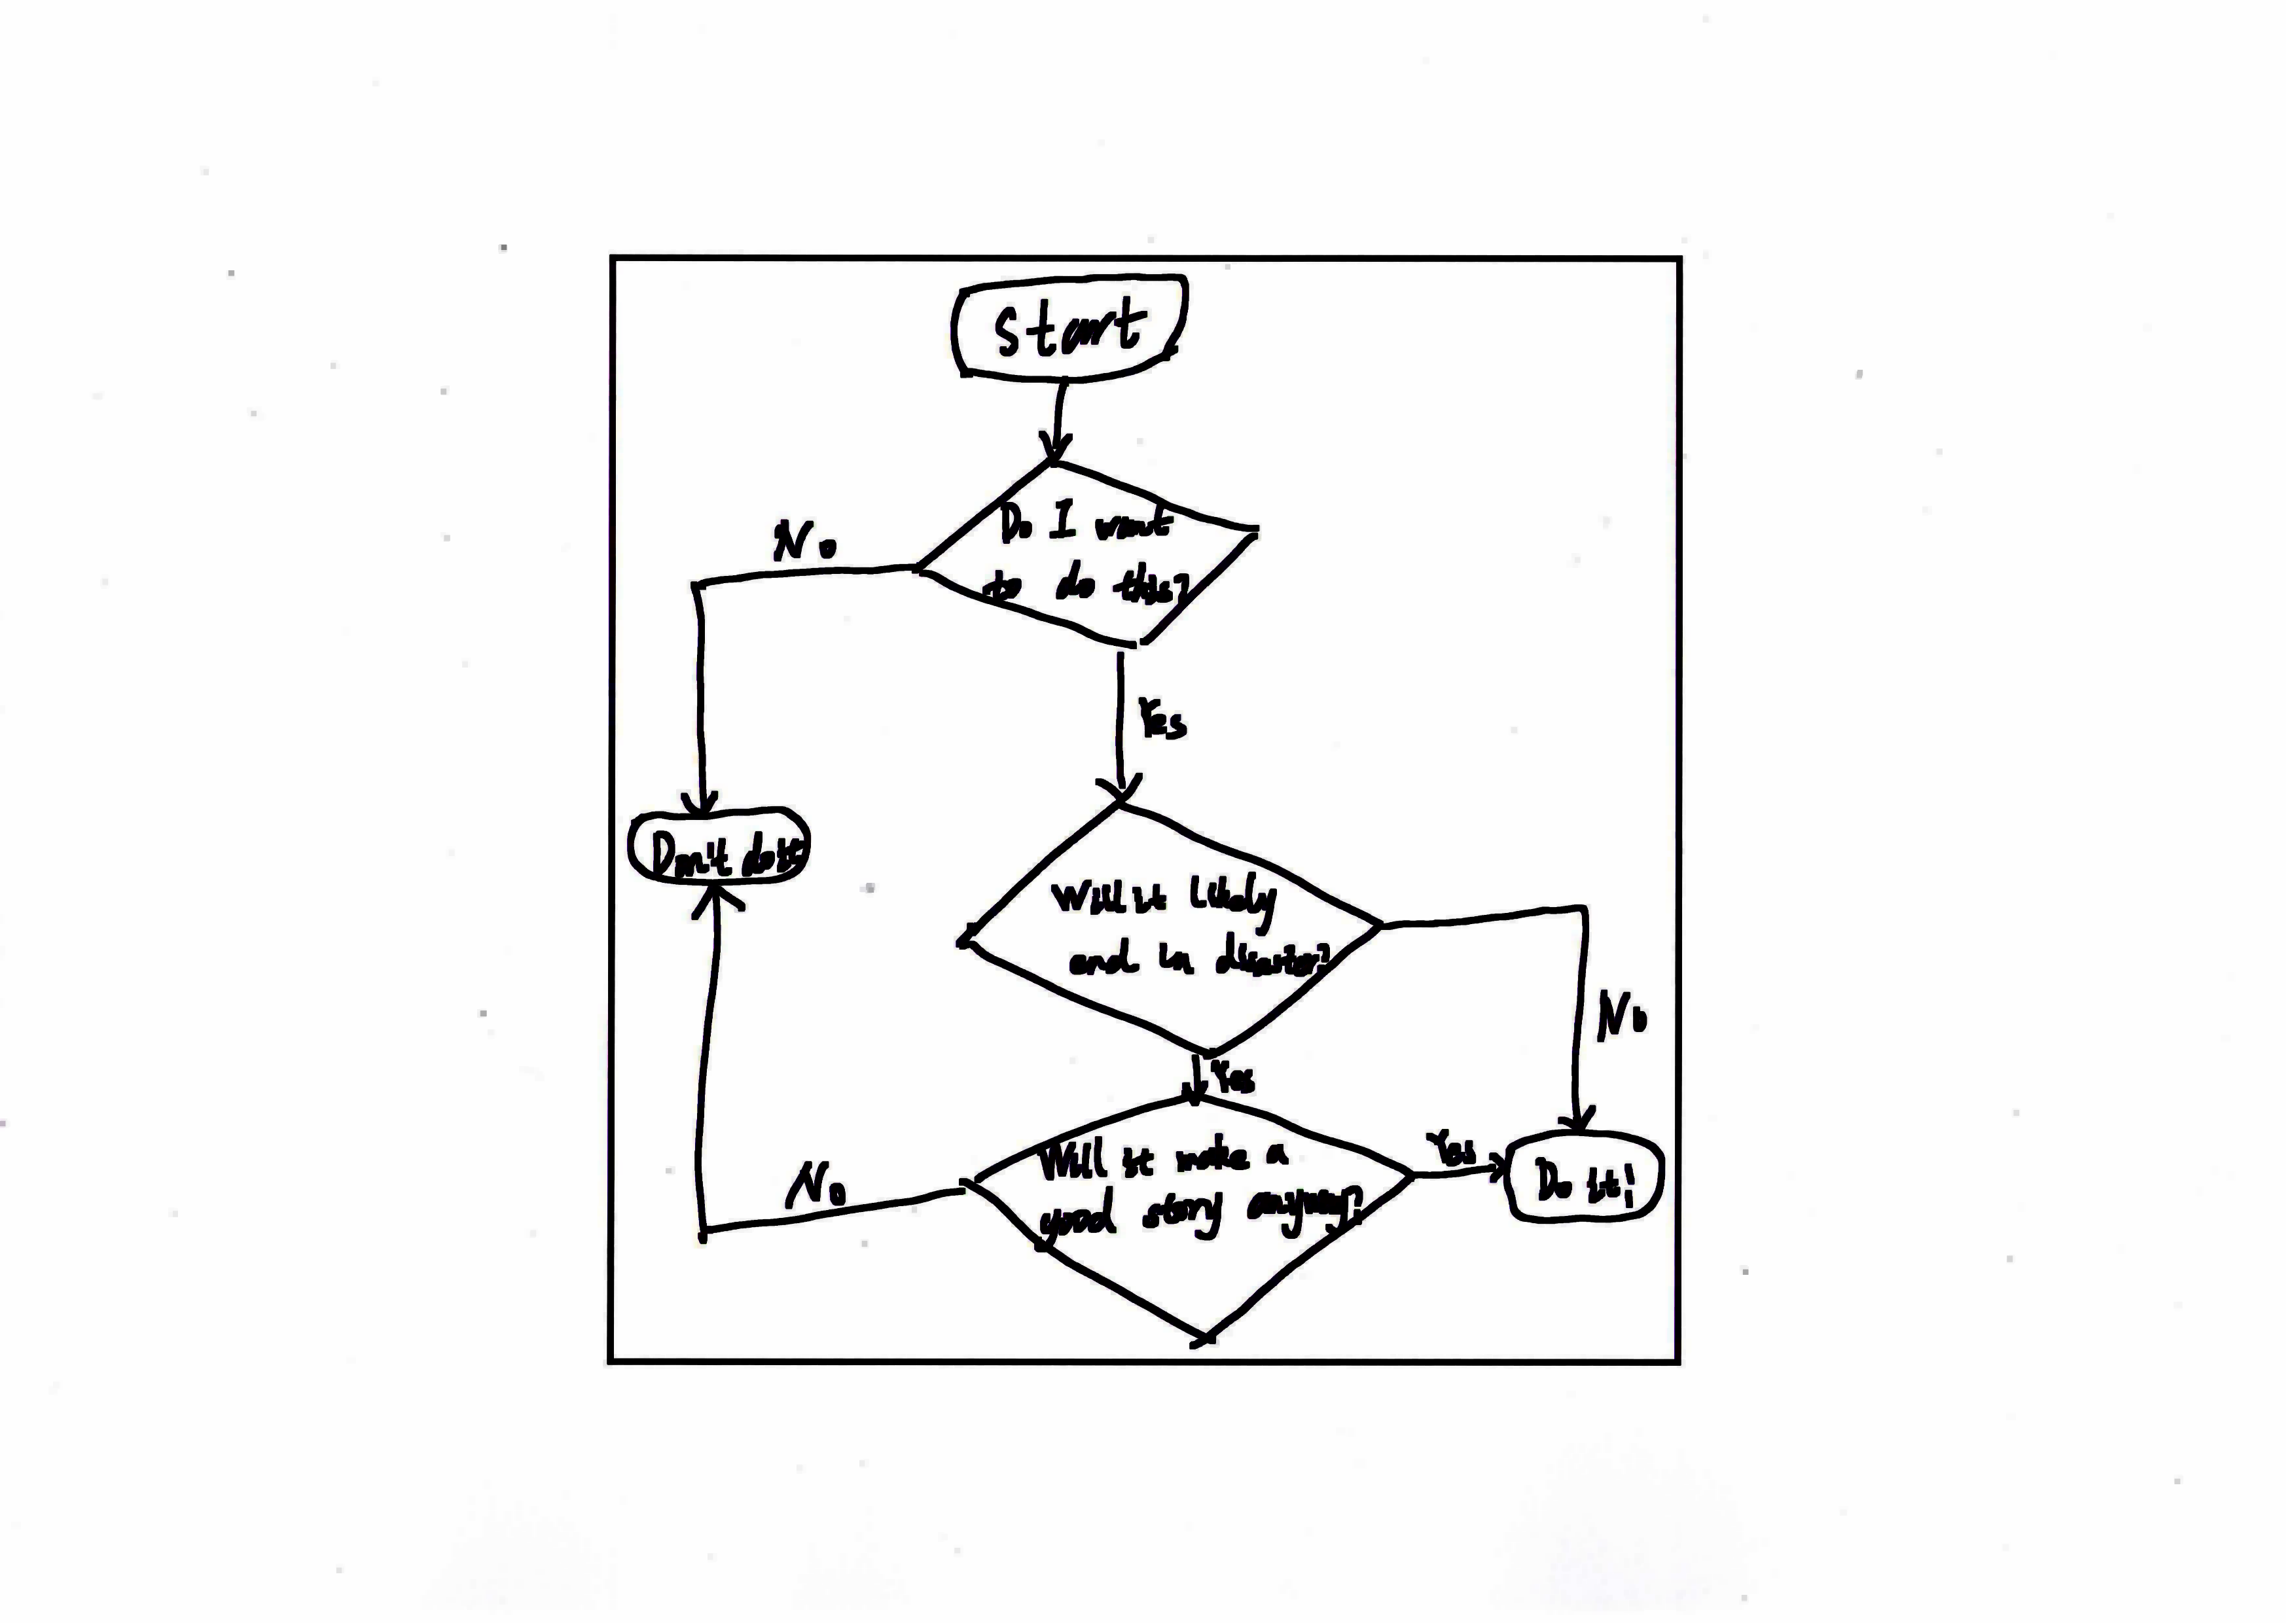 start
Do I want
to do this?
No
Yes
Don't do it
Will it likely
end in disaster?
No
Yes
Will it make a
good story anyway?
Yes
Do it!
No